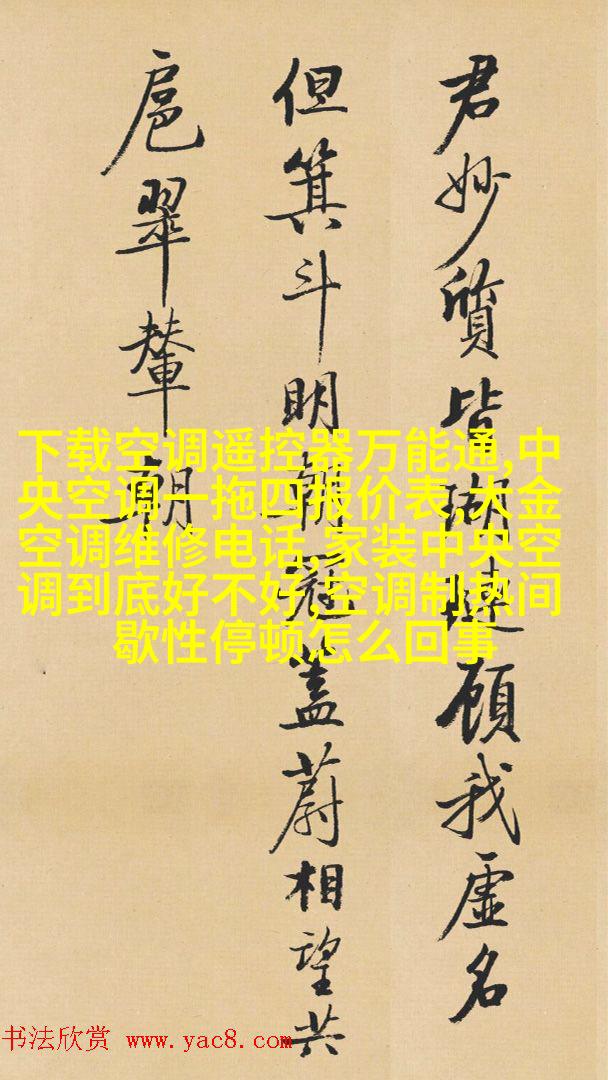 君妙質皆瑚璉顧我虛名
但箕斗明朝冠蓋蔚相望共
扈翠輦朝
下载空调遥控器万能通,中
央空调一拖四报价表,大金
空调维修电话,家装中央空
调到底好不好,空调制热间
歇性停顿怎么回事
书法欣赏 www.yac8.com